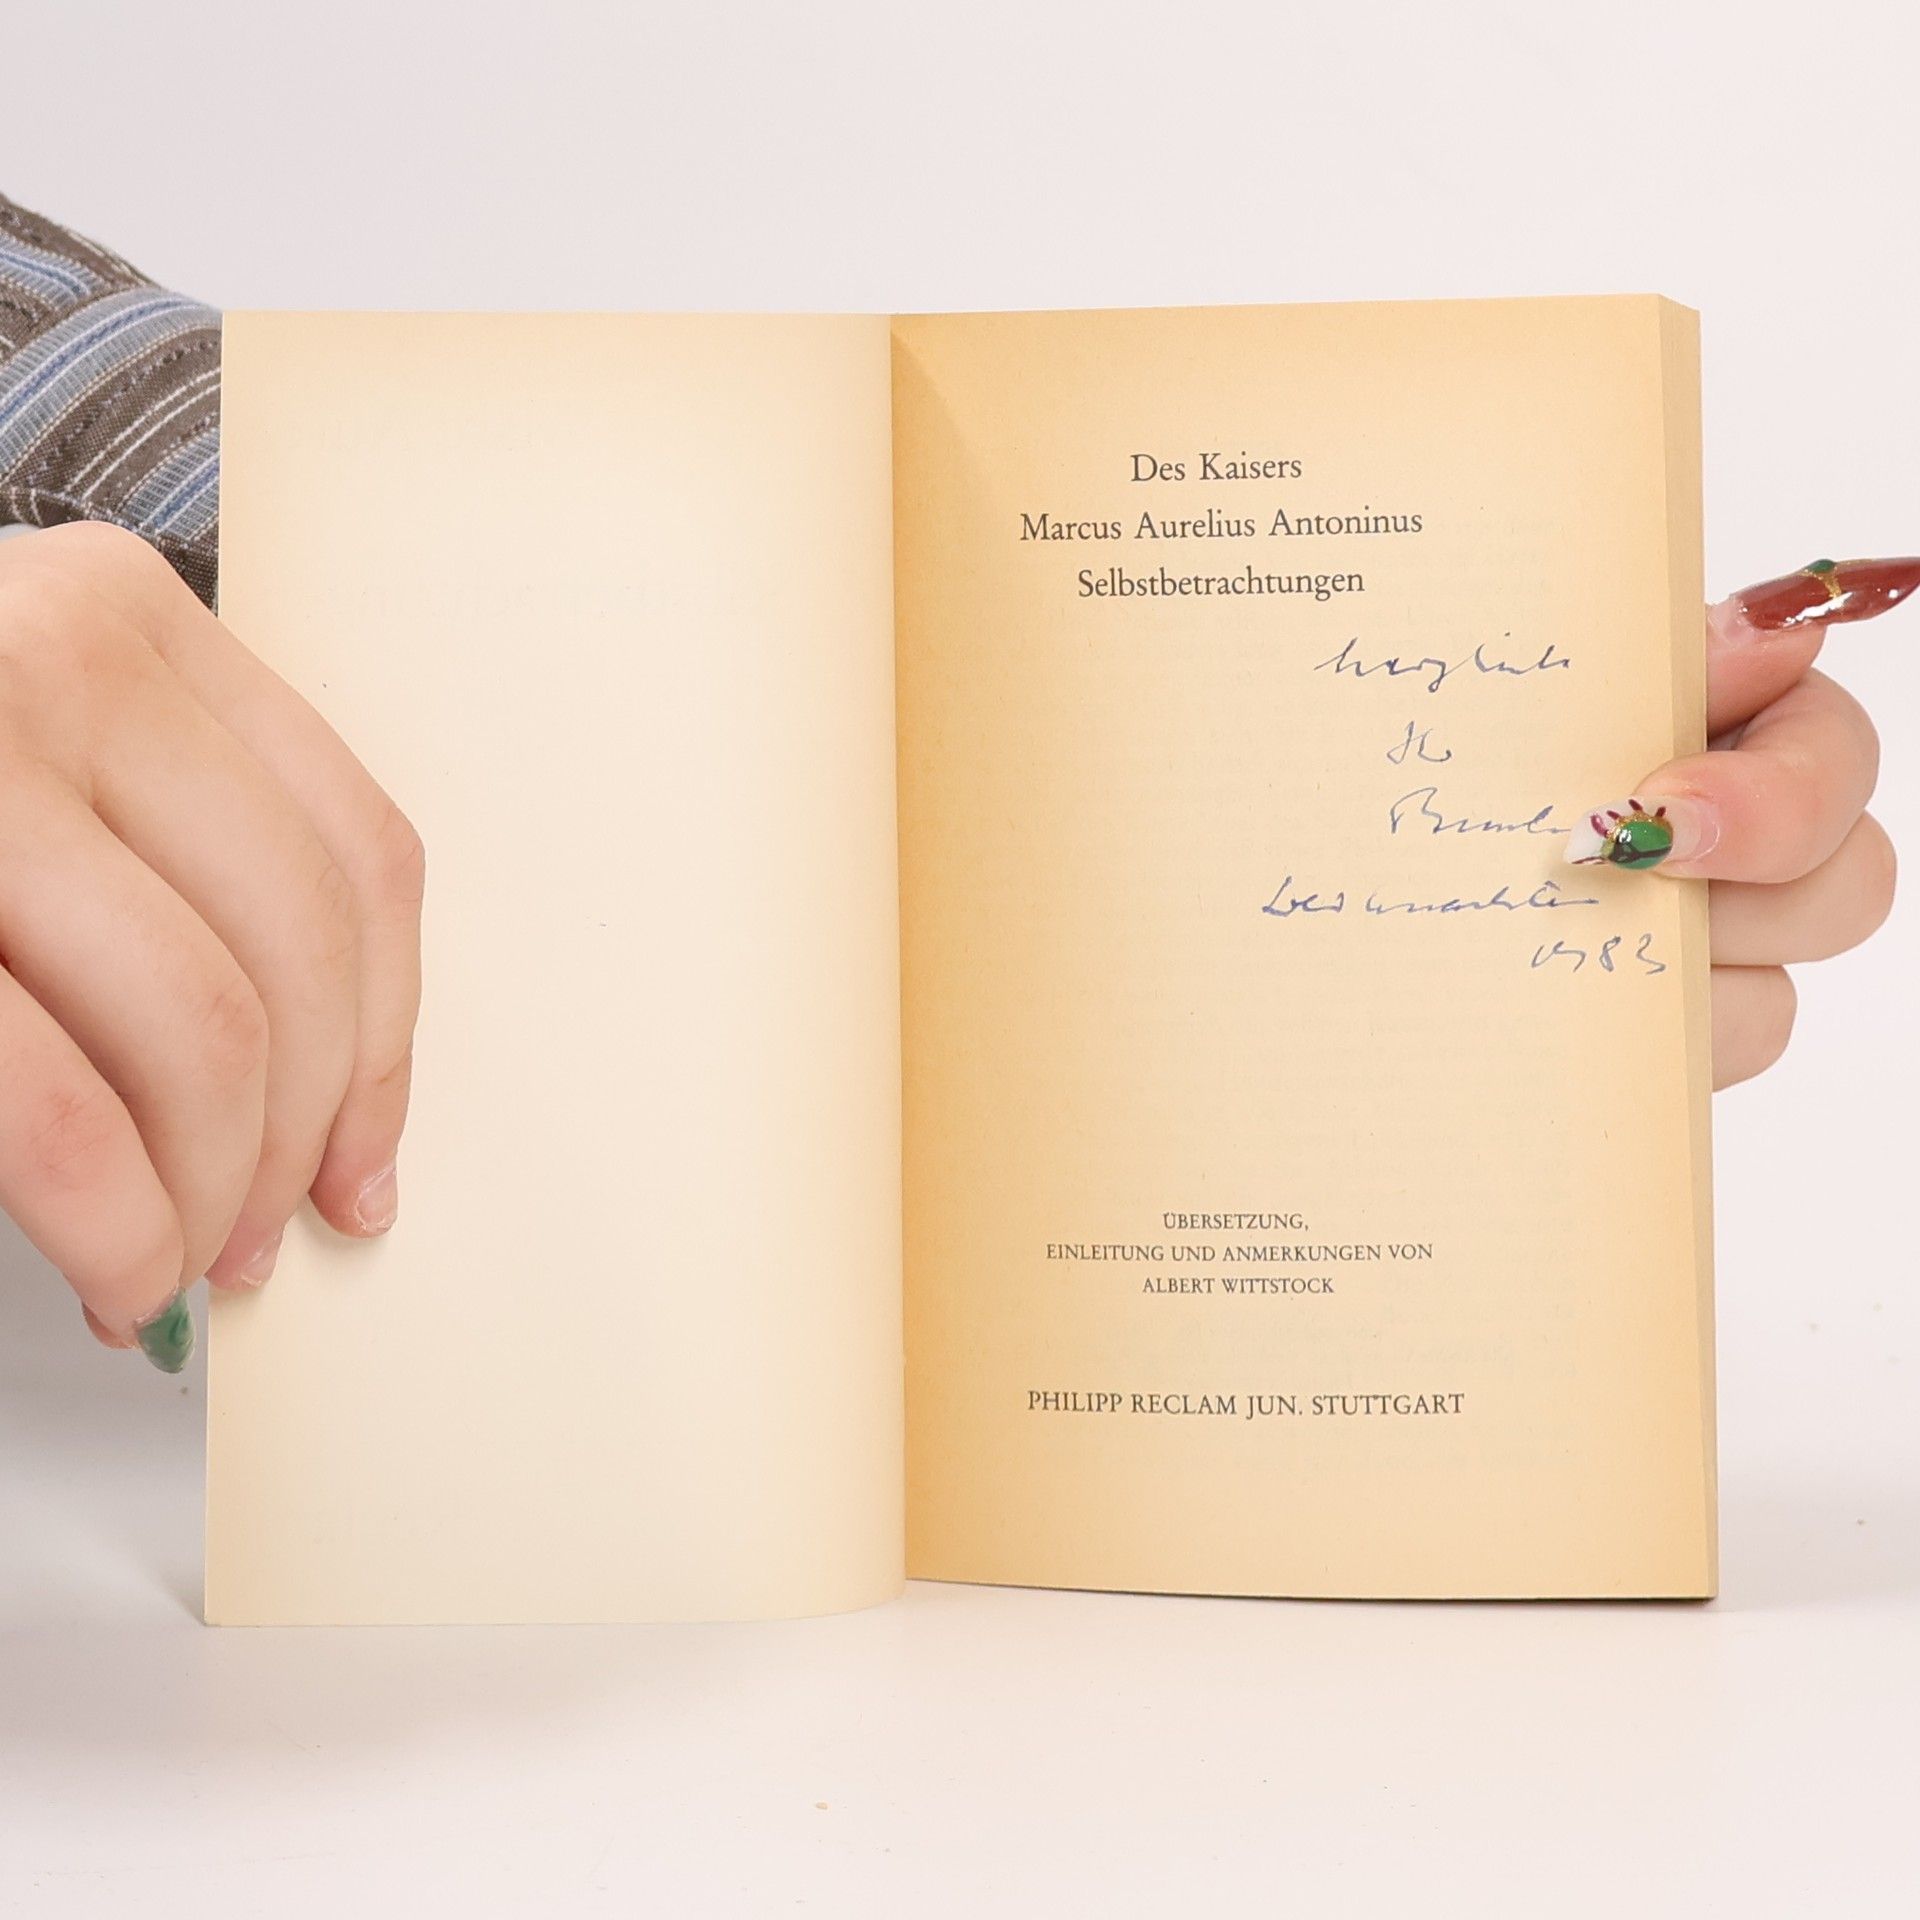 Des Kaisers
Marcus Aurelius Antoninus
Selbstbetrachtungen
herzlichst
Weihnachten
1983
ÜBERSETZUNG,
EINLEITUNG UND ANMERKUNGEN VON
ALBERT WITTSTOCK
PHILIPP RECLAM JUN. STUTTGART